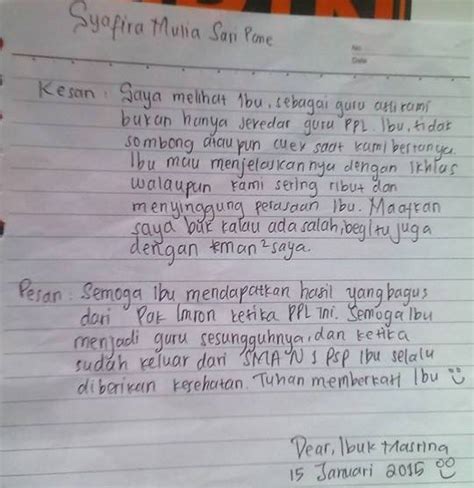 Syafira Mulia Sari Pane
No.
Date
Kesan : Saya melihat Ibu, sebagai guru asli kami
bukan hanya seredar guru PPL. Ibu, tidak
sombong ataupun cuek saat kami bertanya.
Ibu mau menjelaskannya dengan Ikhlas
walaupun kami sering ribut dan
menyinggung perasaan Ibu. Maafkan
saya buk kalau ada salah, begitu juga
dengan teman² saya.
Pesan : Semoga Ibu mendapatkan hasil yang bagus
dari Pak Imron ketika PPL ini. Semoga Ibu
menjadi guru sesungguhnya, dan ketika
sudah keluar dari SMA N 1 PSP Ibu selalu
diberikan kesehatan. Tuhan memberkati Ibu
Dear, Ibuk Masrina
15 Januari 2015